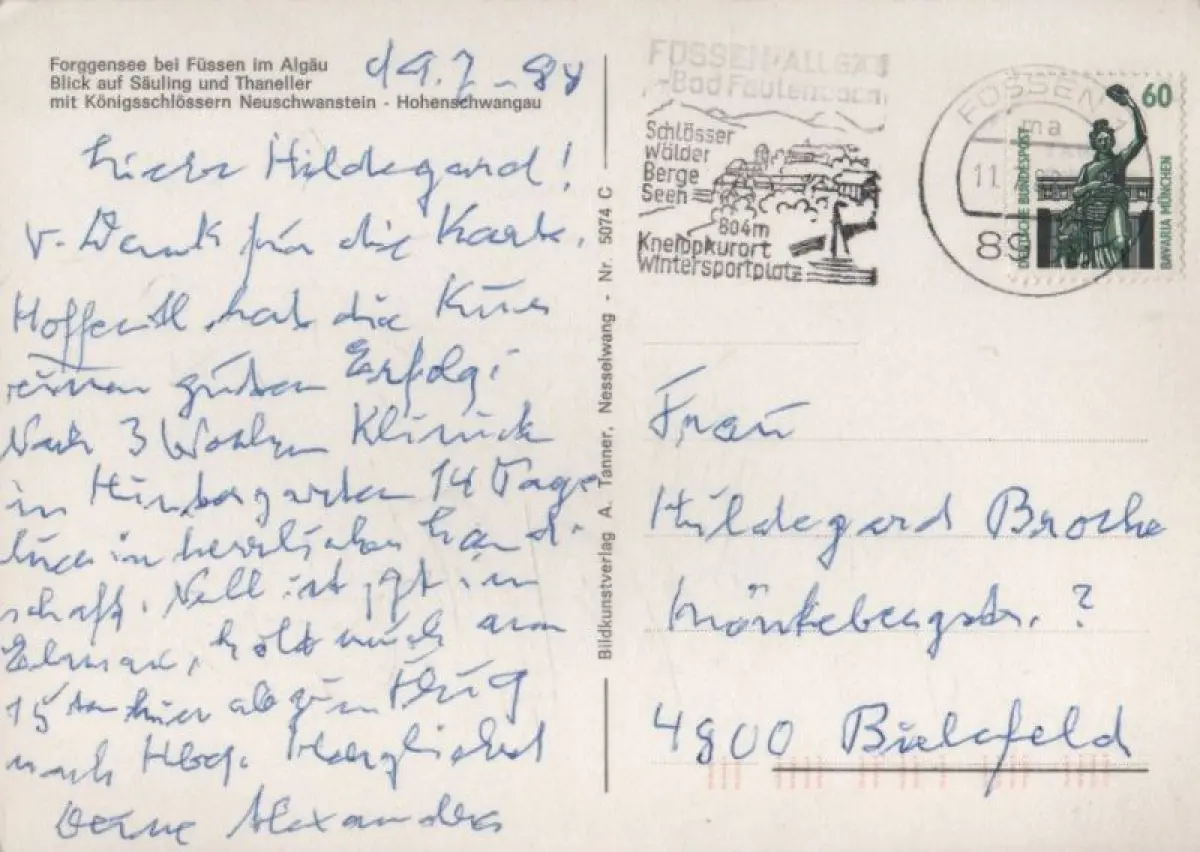 Forggensee bei Füssen im Algäu
Blick auf Säuling und Thaneller
mit Königsschlössern Neuschwanstein - Hohenschwangau
Liebe Hildegard!
v. Dank für die Karte.
Hoffentl. hat die Kur
einen guten Erfolg!
Nach 3 Wochen Klinick
in 14 Tage
in herrlicher Land-
schaft. ist jetzt in
Elmau, holt mich am
15ten hier ab zum Flug
nach Hbg. Herzlichst
Deine Alexandra
Bildkunstverlag A. Tanner, Nesselwang - Nr. 5074 C
FÜSSEN/ALLGÄU
-Bad Faulenbach
Schlösser
Wälder
Berge
Seen
804m
Kneippkurort
Wintersportplatz
FÜSSEN 1
ma
11.
89
60
DEUTSCHE BUNDESPOST
BAVARIA MÜNCHEN
Frau
Hildegard Broche
Mönkebergstr. ?
4800 Bielefeld